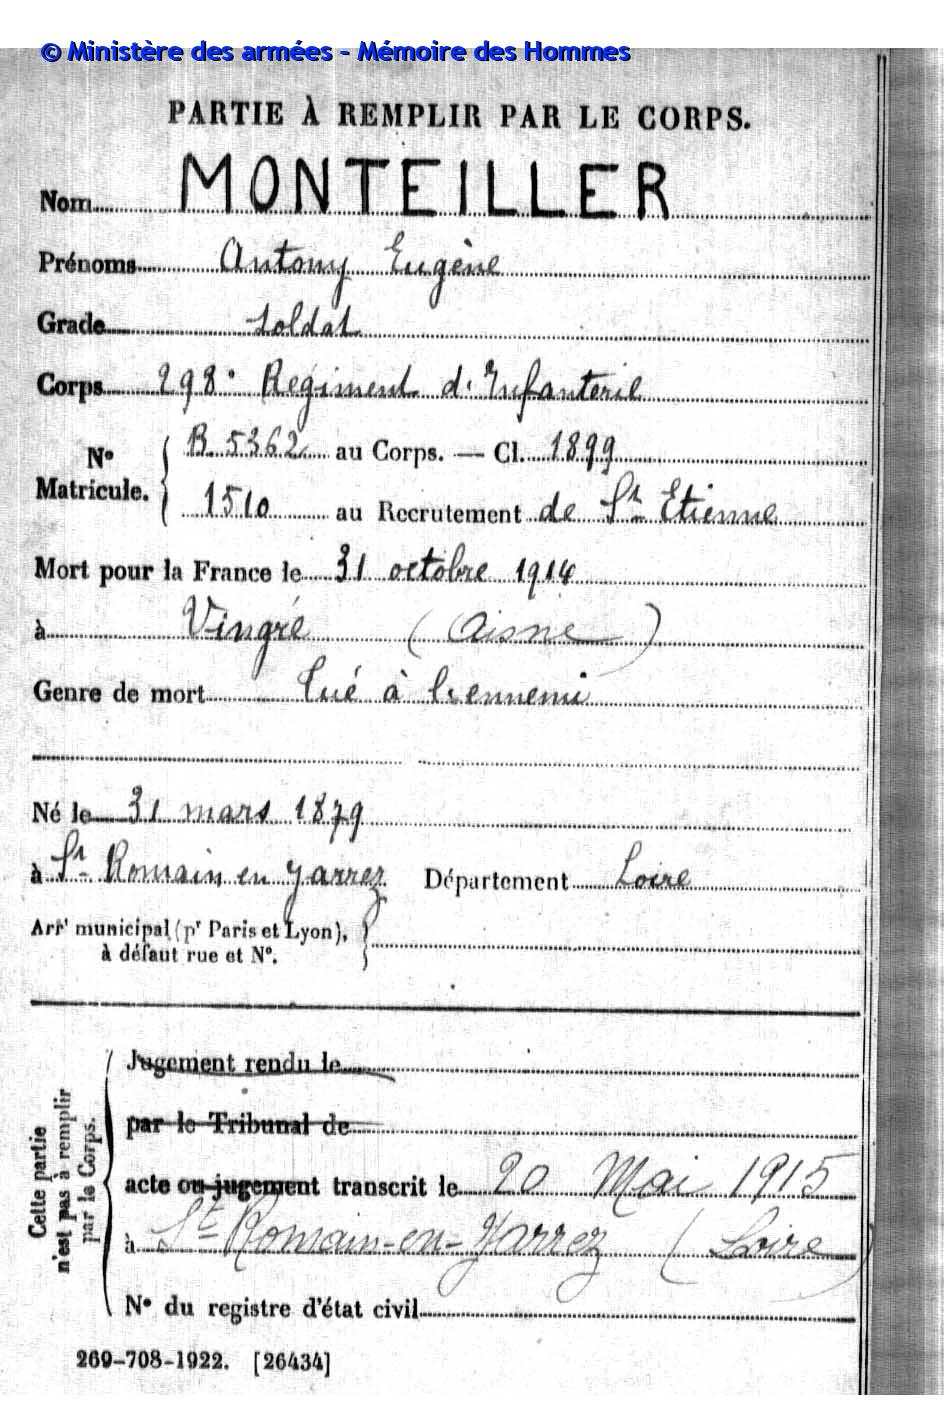 © Ministère des armées - Mémoire des Hommes
PARTIE À REMPLIR PAR LE CORPS.
Nom MONTEILLER
Prénoms Antony Eugène
Grade soldat
Corps 298e Régiment d'Infanterie
N° Matricule. { B. 5362 au Corps. — Cl. 1899
1510 au Recrutement de St Etienne
Mort pour la France le 31 octobre 1914
à Vingré (Aisne)
Genre de mort Tué à l'ennemi
Né le 31 mars 1879
à St Romain en Jarrez Département Loire
Arrt municipal (pr Paris et Lyon), }
à défaut rue et N°.
Cette partie n'est pas à remplir par le Corps.
Jugement rendu le
par le Tribunal de
acte ou jugement transcrit le 20 Mai 1915
à St Romain-en-Jarrez (Loire)
N° du registre d'état civil
269-708-1922. [26434]